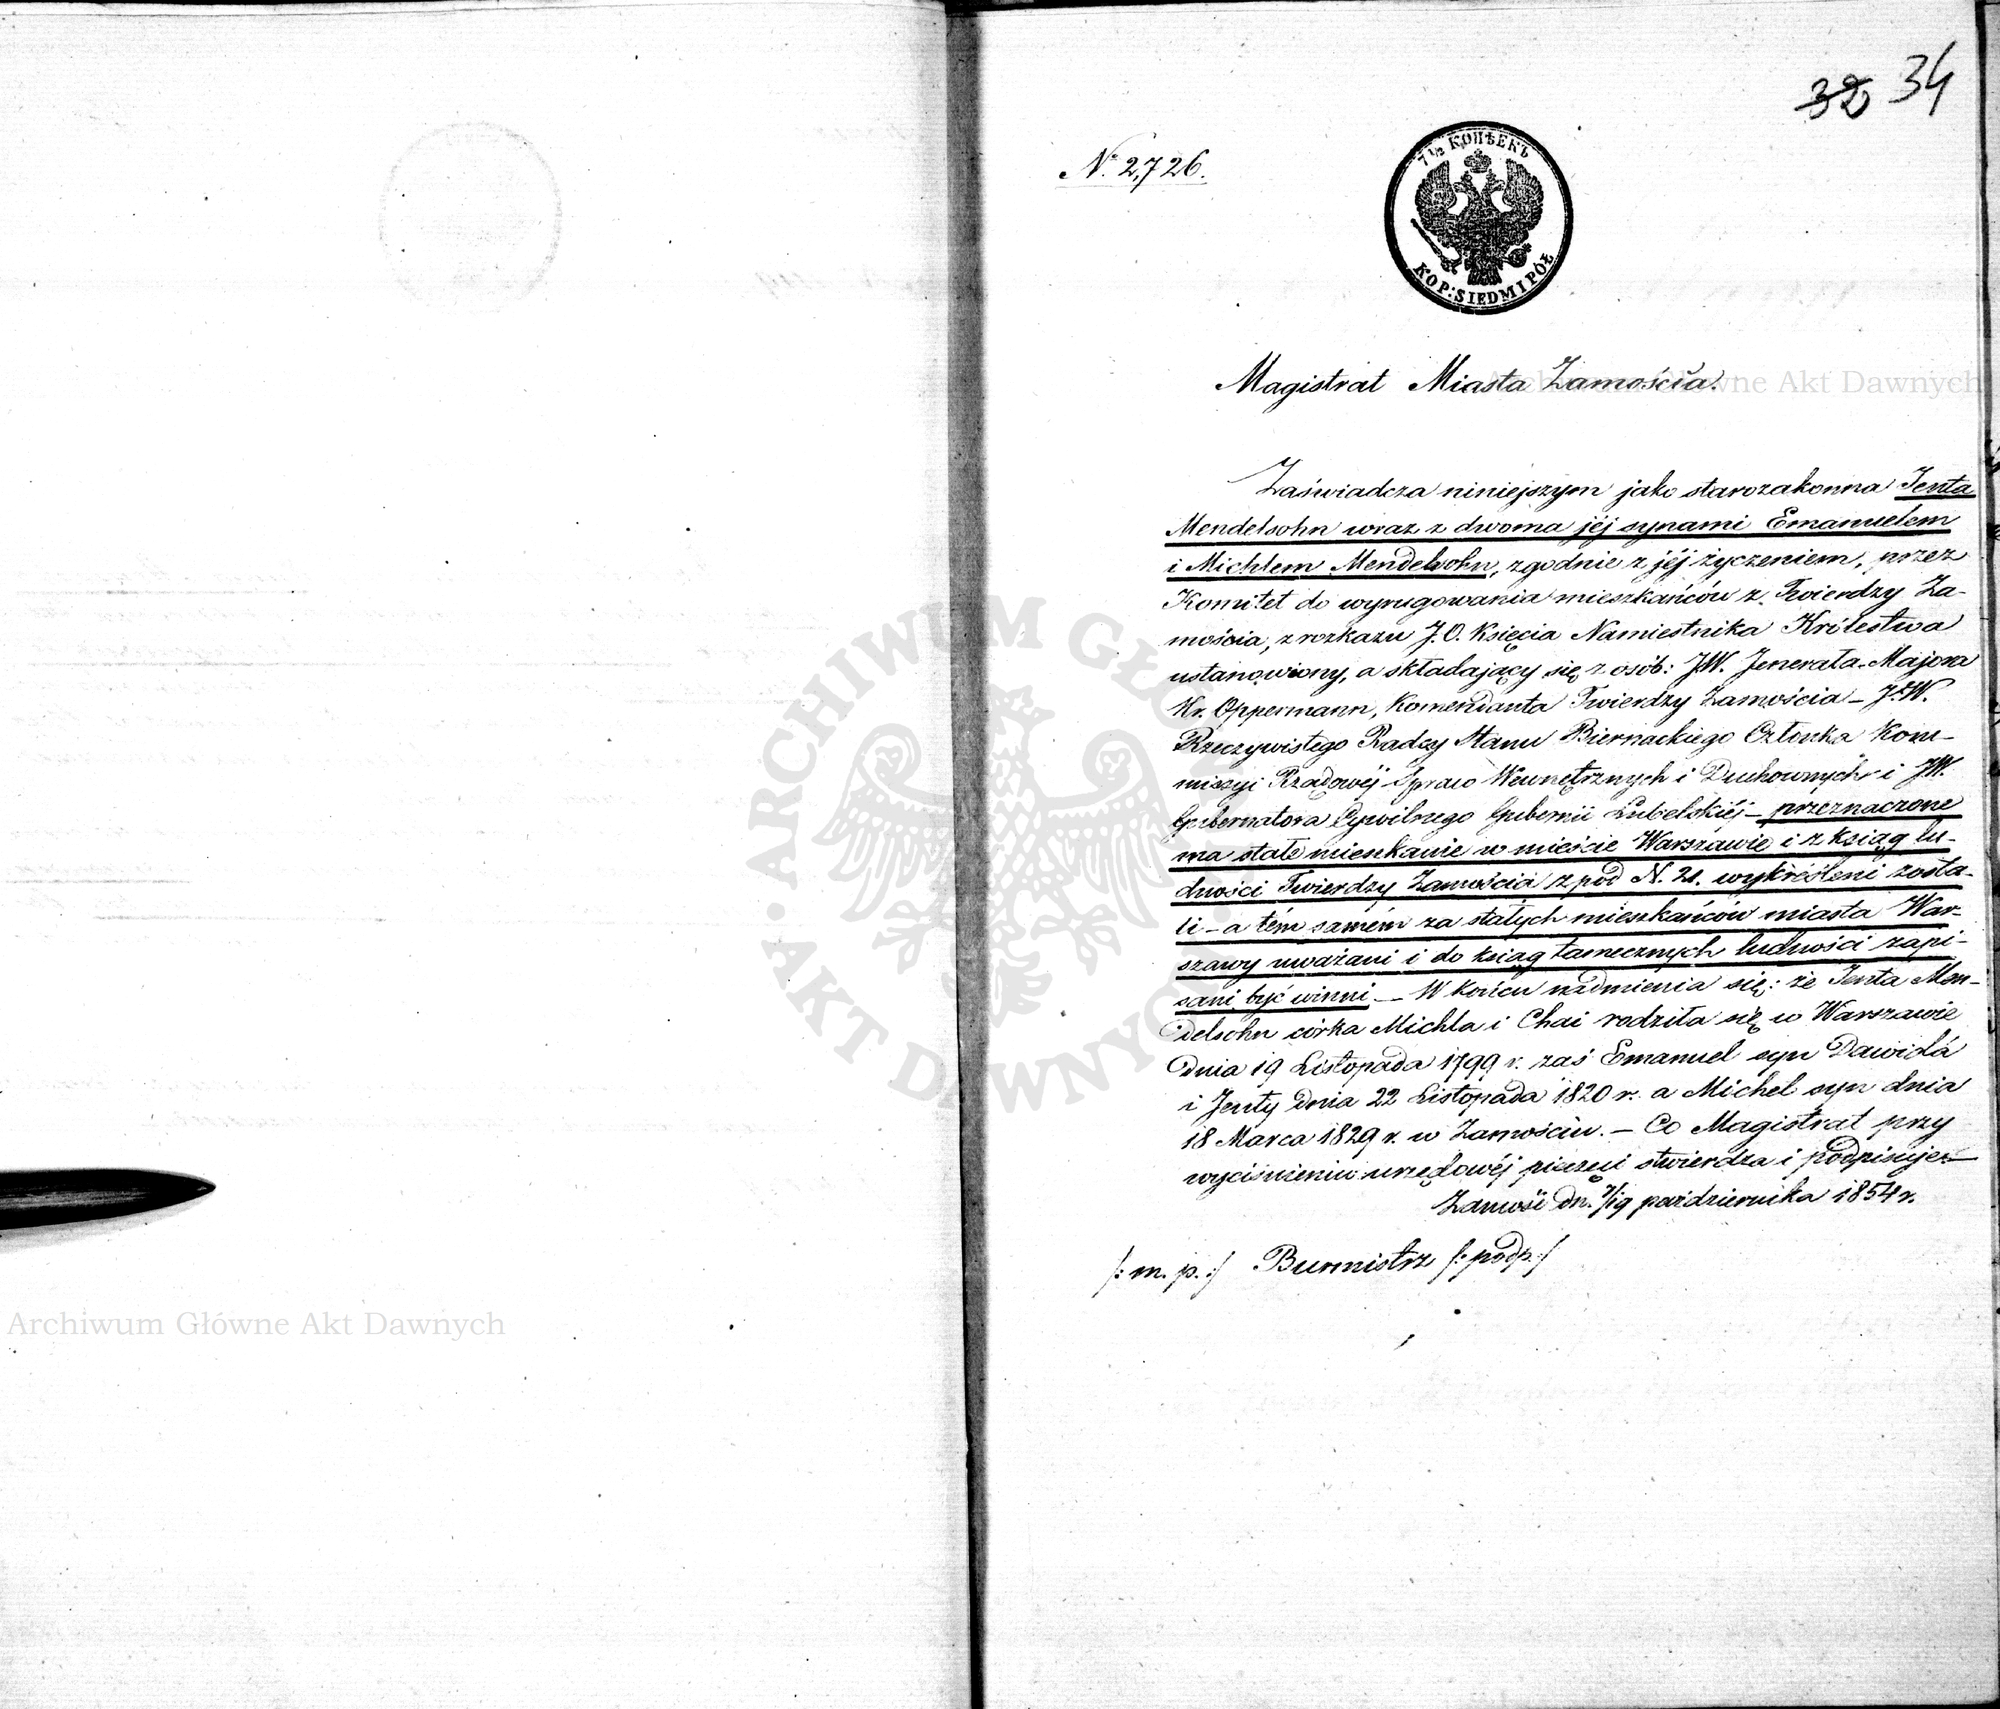 32 34
№ 2,726.
7 1/2 КОПѢЕКЪ
KOP: SIEDM I PÓŁ
Magistrat Miasta Zamościa.
Zaświadcza niniejszym jako starozakonna Jenta
Mendelsohn wraz z dwoma jéj synami Emanuelem
i Michlem Mendelsohn, zgodnie z jéj życzeniem, przez
Komitet do wyrugowania mieszkańców z Twierdzy Za-
mościa, z rozkazu J. O. Księcia Namiestnika Królestwa
ustanowiony, a składający się z osób: JW. Jenerała-Majora
Kr. Oppermann, Komendanta Twierdzy Zamościa – J.W.
Rzeczywistego Radcy Stanu Biernackiego Członka Kom-
missyi Rządowéj Spraw Wewnętrznych i Duchownych i JW.
Gubernatora Cywilnego Gubernii Lubelskiéj – przeznaczone
ma stałe mieszkanie w mieście Warszawie i z ksiąg lu-
dności Twierdzy Zamościa z pod N. 21. wykréśleni zosta-
li – a tém samém za stałych mieszkańców miasta War-
szawy uważani i do ksiąg tamecznych ludności zapi-
sani być winni. – W końcu nadmienia się: że Jenta Men-
delsohn córka Michla i Chai rodziła się w Warszawie
dnia 19 Listopada 1799 r. zaś Emanuel syn Dawida
i Jenty dnia 22 Listopada 1820 r. a Michel syn dnia
18 Marca 1829 r. w Zamościu. – Co Magistrat przy
wyciśnieniu urzędowéj pieczęci stwierdza i podpisuje –
Zamość dn. 7/19 października 1854 r.
/: m. p. :/ Burmistrz /: podp :/
Archiwum Główne Akt Dawnych
Archiwum Główne Akt Dawnych
ARCHIWUM GŁÓWNE AKT DAWNYCH